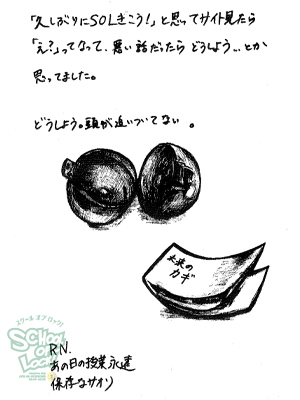 「久しぶりにSOLきこう!」と思ってサイト見たら
「え?」ってなって、悪い話だったら どうしよう…とか
思ってました。
どうしよう。頭が追いついてない 。
未来の
カギ
スクール オブ ロック!
SCHOOL
OF
LOCK!
R.N.
あの日の授業永遠
保存なサオリ